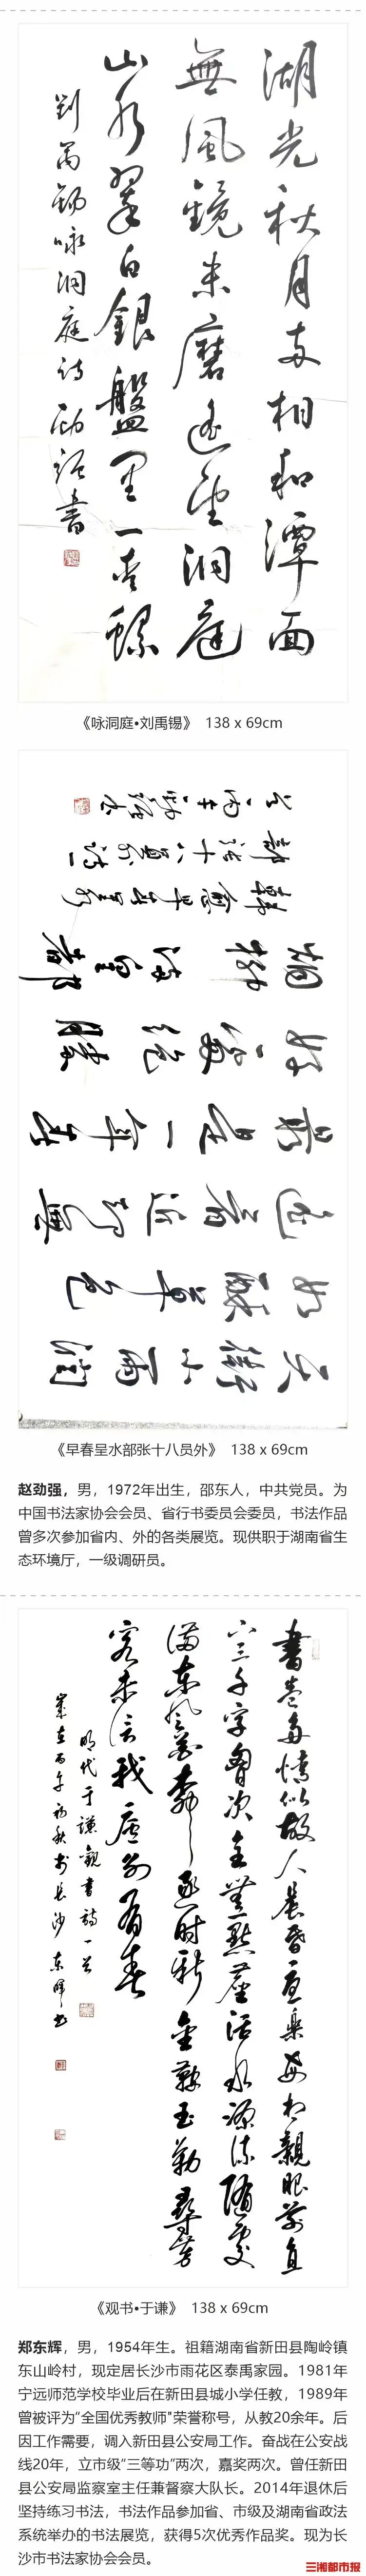 湖光秋月兩相和潭面
無風鏡未磨遙望洞庭
山水翠白銀盤里一青螺
劉禹錫咏洞庭诗劲强書
《咏洞庭•刘禹锡》 138 x 69cm
天街小雨潤
如酥草色
遙看近却無
最是一年春
好處絕勝
煙柳滿皇都
韓愈早春呈水
部張十八員外詩一
首丙午勁强書
《早春呈水部张十八员外》 138 x 69cm
赵劲强，男，1972年出生，邵东人，中共党员。为
中国书法家协会会员、省行书委员会委员，书法作品
曾多次参加省内、外的各类展览。现供职于湖南省生
态环境厅，一级调研员。
書卷多情似故人晨昏憂樂每相親眼前直
下三千字胸次全無一點塵活水源流隨處
滿東風花柳逐时新金鞍玉勒尋芳
客未信我廬别有春
明代于謙觀書詩一首
歲在丙午初秋於長沙东暉书
《观书•于谦》 138 x 69cm
郑东辉，男，1954年生。祖籍湖南省新田县陶岭镇
东山岭村，现定居长沙市雨花区泰禹家园。1981年
宁远师范学校毕业后在新田县城小学任教，1989年
曾被评为“全国优秀教师”荣誉称号，从教20余年。后
因工作需要，调入新田县公安局工作。奋战在公安战
线20年，立市级“三等功”两次，嘉奖两次。曾任新田
县公安局监察室主任兼督察大队长。2014年退休后
坚持练习书法，书法作品参加省、市级及湖南省政法
系统举办的书法展览，获得5次优秀作品奖。现为长
沙市书法家协会会员。
三湘都市报